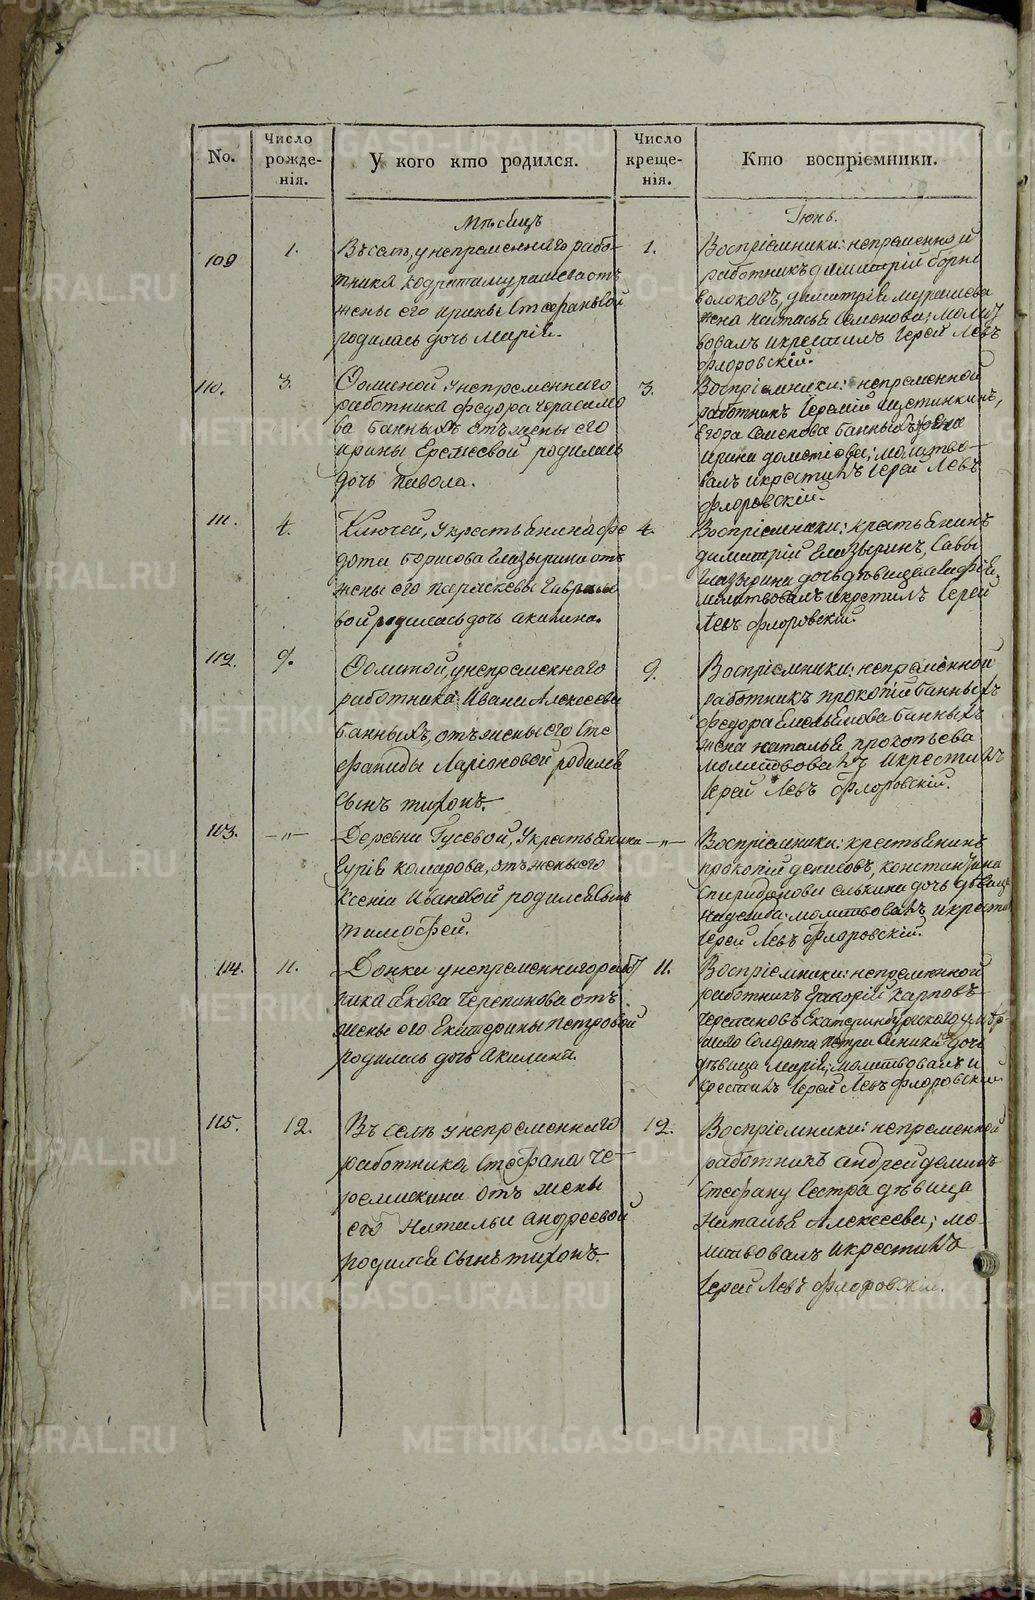 No.
Число рожде-нія.
У кого кто родился.
Число креще-нія.
Кто воспріемники.
Мѣсяцъ
Іюнь.
109
1.
Въ селѣ, у непременнаго рабо-
тника
отъ
жены его Ирины Стефановой
родилась дочь Марія.
1.
Воспріемники: непременной
работникъ Димитрій
волоковъ, Димитрія
жена Наталья Семенова; молит
вовалъ и крестилъ Іерей Левъ
Флоровскій.
110.
3.
у непременнаго
работника Федора Герасимо
ва Банныхъ отъ жены его
Ирины Еремеевой родилась
дочь
3.
Воспріемники: непременной
работникъ Іеремій Щетинкинъ,
Егора Семенова Банныхъ жена
Ирина молитво-
валъ и крестилъ Іерей Левъ
Флоровскій.
111.
4.
Ключей, у крестьянина Фе
дота Борисова Глазырина отъ
жены его Параскевы Гаврило
вой родилась дочь Акилина.
4.
Воспріемники: крестьянинъ
Димитрій Глазыринъ, Саввы
Глазырина дочь дѣвица
молитвовалъ и крестилъ Іерей
Левъ Флоровскій.
112.
9.
у непременнаго
работника Ивана Алексеева
Банныхъ, отъ жены его Сте
фаниды Ларіоновой родился
сынъ Тихонъ.
9.
Воспріемники: непременной
работникъ Прокопій Банныхъ
Федора Емельянова Банныхъ
жена Наталья Прокопьева
молитвовалъ и крестилъ
Іерей Левъ Флоровскій.
113.
-"-
Деревни Гусевой, у крестьянина
Гурія Комарова, отъ жены его
Ксеніи Ивановой родился сынъ
Тимофей.
-"-
Воспріемники: крестьянинъ
Прокопій Денисовъ, Константина
Спиридонова дочь дѣвица
Надежда. молитвовалъ и крестил
Іерей Левъ Флоровскій.
114.
11.
у непременнаго работ
ника Якова Черепанова отъ
жены его Екатерины Петровой
родилась дочь Акилина.
11.
Воспріемники: непременной
работникъ Григорій Карповъ
Черепановъ Екатеринбургскаго
Солдата Петра дочь
дѣвица Марія; молитвовалъ и
крестилъ Іерей Левъ Флоровскій.
115.
12.
Въ селѣ у непременнаго
работника Стефана Че-
ремискина отъ жены
его Натальи Андреевой
родился сынъ Тихонъ.
12.
Воспріемники: непременной
работникъ Андрей Деминъ
Стефану сестра дѣвица
Наталья Алексеева; мо-
литвовалъ и крестилъ
Іерей Левъ Флоровскій.
METRIKI.GASO-URAL.RU